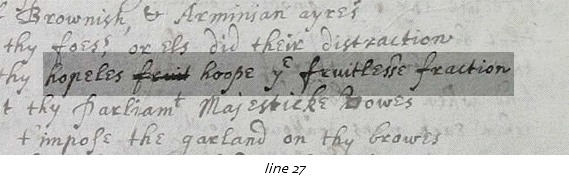 Brownish, & Arminian ayres
thy foess, or els did their distraction
thy hopeles fruit hoope yᵉ fruitlesse fraction
t thy Parliamᵗ Majesticke Vowes
t'impose the garland on thy browes
line 27